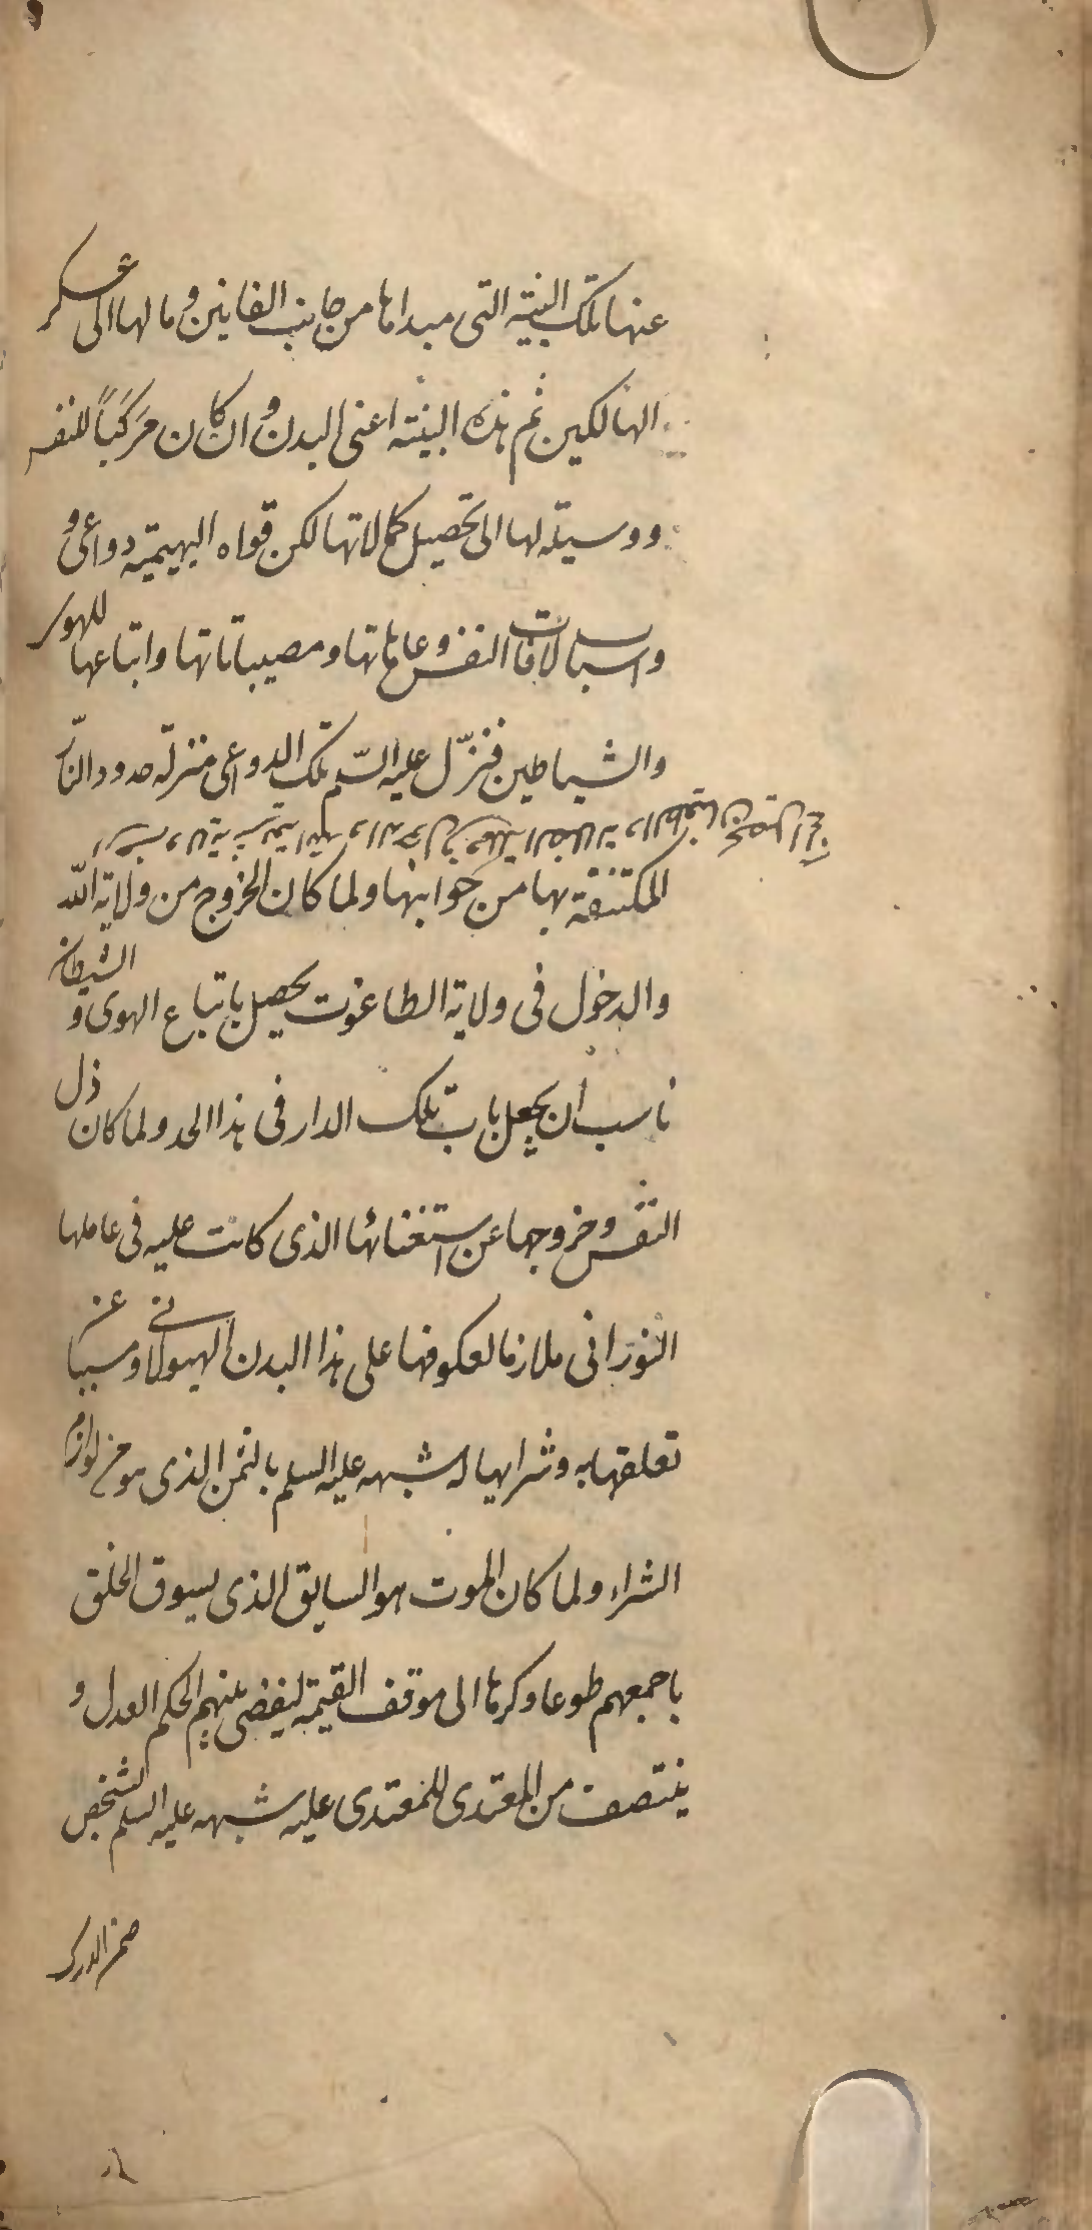 عنها تلك البنية التى مبداها من جانب الفانين و ما لها الى عسكر
الهالكين ثم هذه البنية اعنى البدن و ان كان مركبا للنفس
و وسيلة لها الى تحصيل كمالاتها لكن قواه البهيمية دواعى و
واسباب لافات النفس و عاهاتها و مصيباتاتها و اتباعها للهوى
والشياطين فنزّل عليه السّلم تلك الدواعى منزلة حدود الدّار
المكتنفة بها من جوانبها ولما كان الخروج من ولاية اللّه
والدخول فى ولاية الطاغوت يحصل باتباع الهوى و الشيطان
ناسب ان يجعل باب تلك الدار فى هذا الحد ولما كان ذل
النفس و خروجها عن استغنائها الذى كانت عليه فى عاملها
النورانى ملازما لعكوفها على هذا البدن الهيولانى و مسببا عن
تعلقها به و شرايها له شبهه عليه السلم بالثمن الذى هو من لوازم
الشراء ولما كان الموت هو السايق الذى يسوق الخلق
باجمعهم طوعا وكرها الى موقف القيمة ليقضى بينهم الحكم العدل و
ينتصف من المعتدى للمعتدى عليه شبهه عليه السلم بشخص